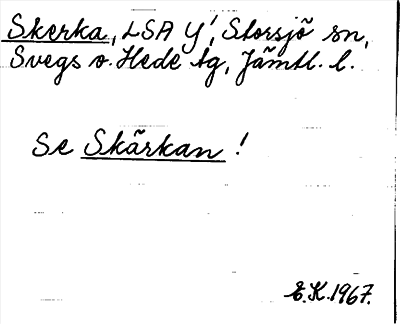 Skerka, LSA Y', Storsjö sn,
Svegs o. Hede tg, Jämtl. l.
Se Skärkan!
E.K. 1967.